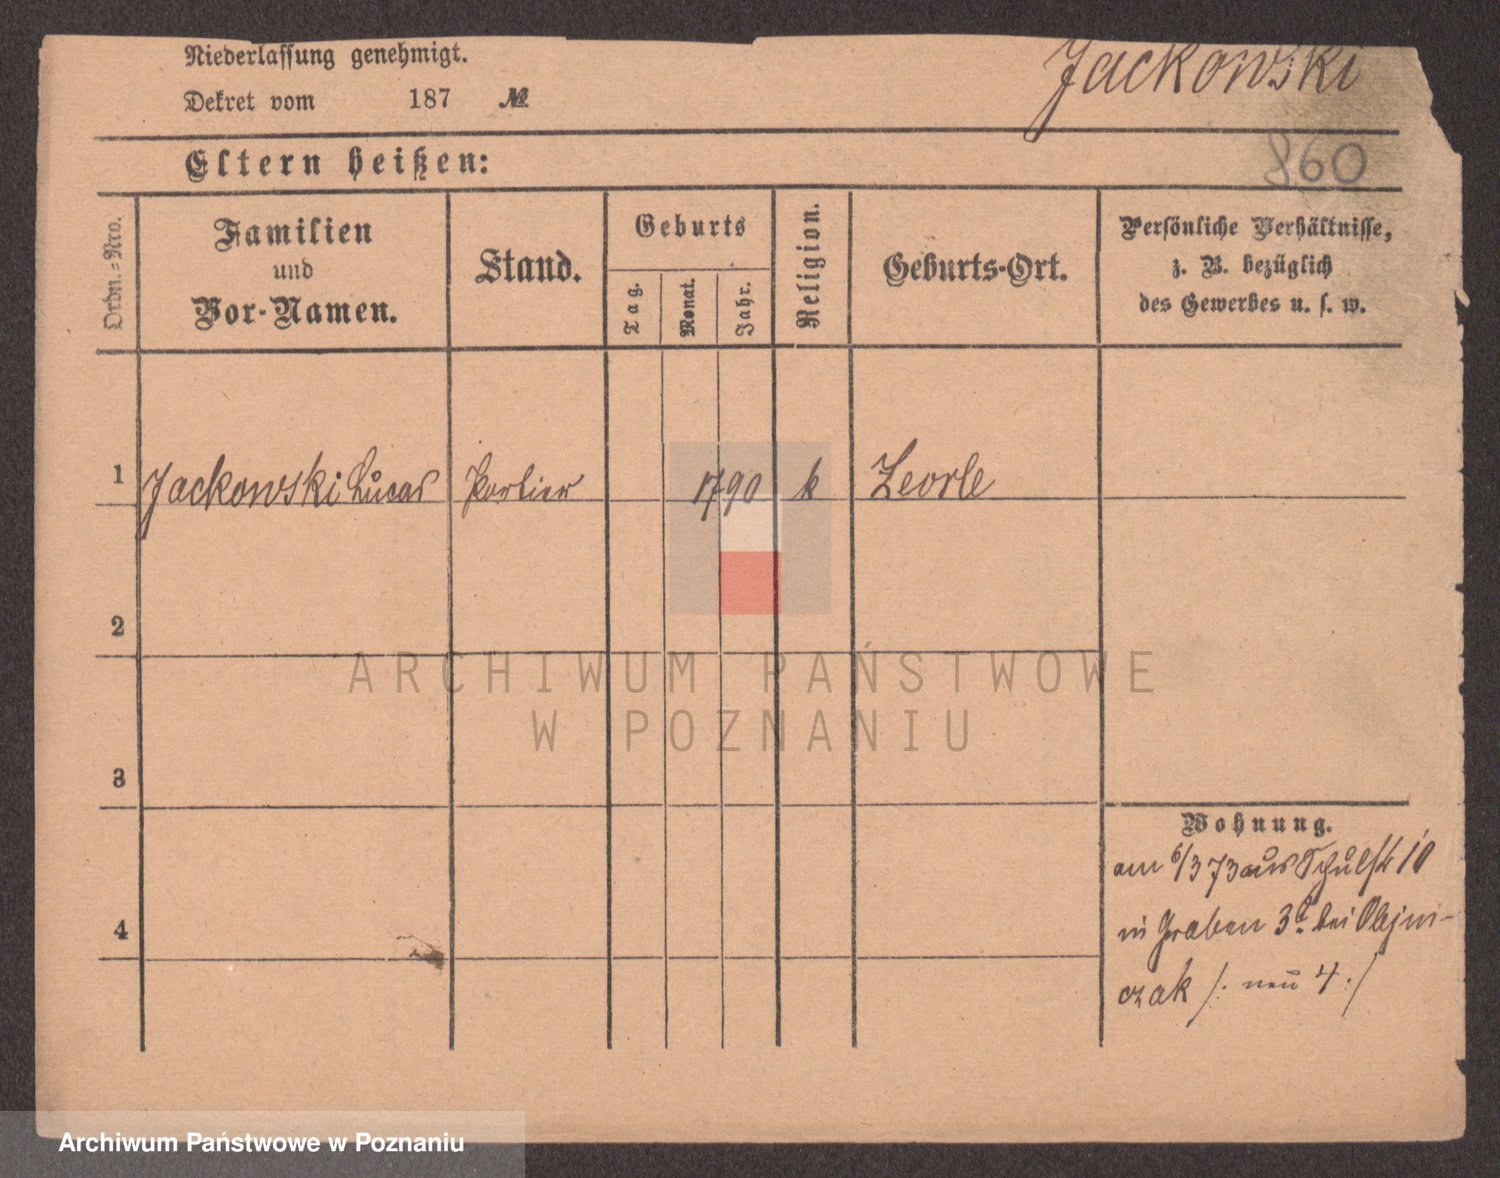 Niederlassung genehmigt.
Jackowski
Dekret vom 187 №
860
Eltern heißen:
Ordn.=Nro.
Familien
und
Vor-Namen.
Stand.
Geburts
Tag.
Monat.
Jahr.
Religion.
Geburts-Ort.
Persönliche Verhältnisse,
z. B. bezüglich
des Gewerbes u. s. w.
1 Jackowski Lucas Portier 1790 k Zeorle
2
3
4
Wohnung.
am 6/3 73 aus Schulstr 10
in Graben 3a bei Olejni-
czak /: neu 4 :/
ARCHIWUM PAŃSTWOWE
W POZNANIU
Archiwum Państwowe w Poznaniu